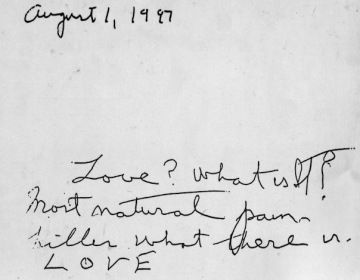 August 1, 1997
Love? What is It?
Most natural pain-
killer what there is.
LOVE